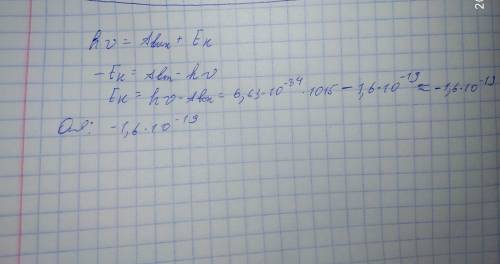 hν = Aвых + Eк
-Eк = Aвых - hν
Eк = hν - Aвых = 6,63·10⁻³⁴ · 1015 - 1,6·10⁻¹⁹ ≈ -1,6·10⁻¹⁹
Отв: -1,6·10⁻¹⁹